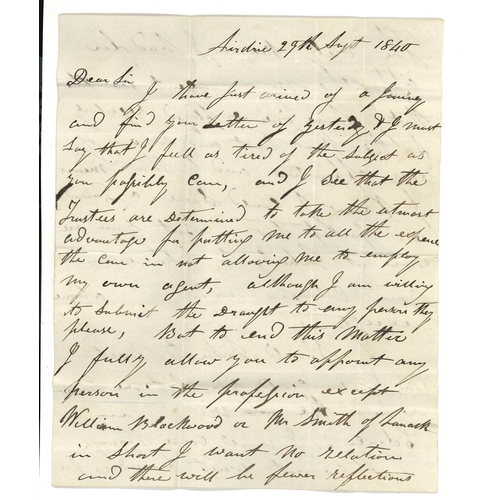 Airdrie 29th Sept 1840
Dear Sir
I have just arived of a Journey
and find your Letter of yesterday & I must
say that I feell as tired of the Subject as
you possibly can, and I See that the
Trustees are determined to take the utmost
advantage for putting me to all the expence
the can in not allowing me to employ
my own agent, although I am willing
to Submit the Draught to any person they
please, But to end this Matter
I fully allow you to appoint any
person in the profession except
William Blackwood or Mr Smith of Lanark
in Short I want no relation
and there will be fewer reflections